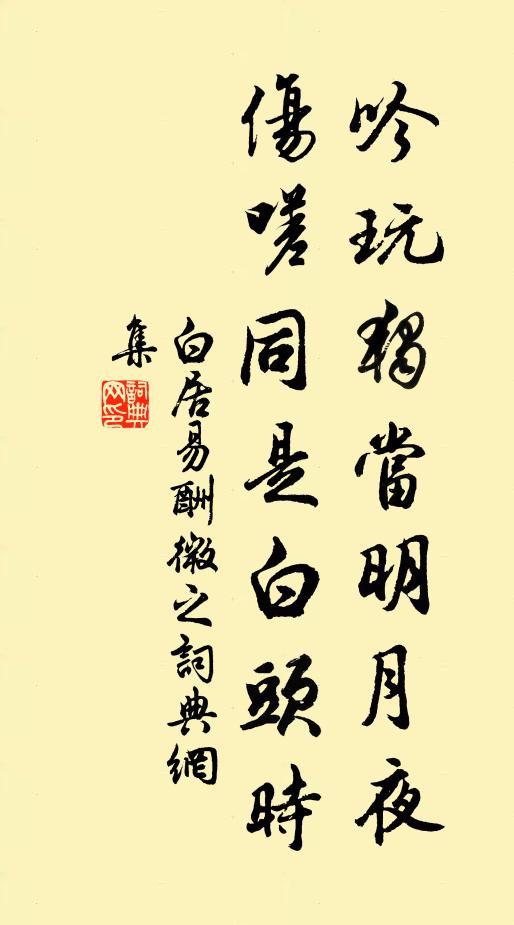 吟玩獨當明月夜
傷嗟同是白頭時
白居易酬微之詞典網
集
詞典
网印